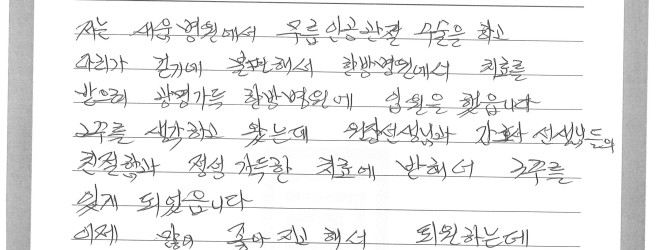 저는 새움병원에서 무릎인공관절 수술을 하고
다리가 걷기에 불편해서 한방병원에서 치료를
받으러 광명가득 한방병원에 입원을 했읍니다
2주를 생각하고 왔는데 원장선생님과 간호사 선생님들의
친절함과 정성 가득한 치료에 반해서 3주를
있게 되었읍니다
이제 많이 좋아지고 해서 퇴원하는데